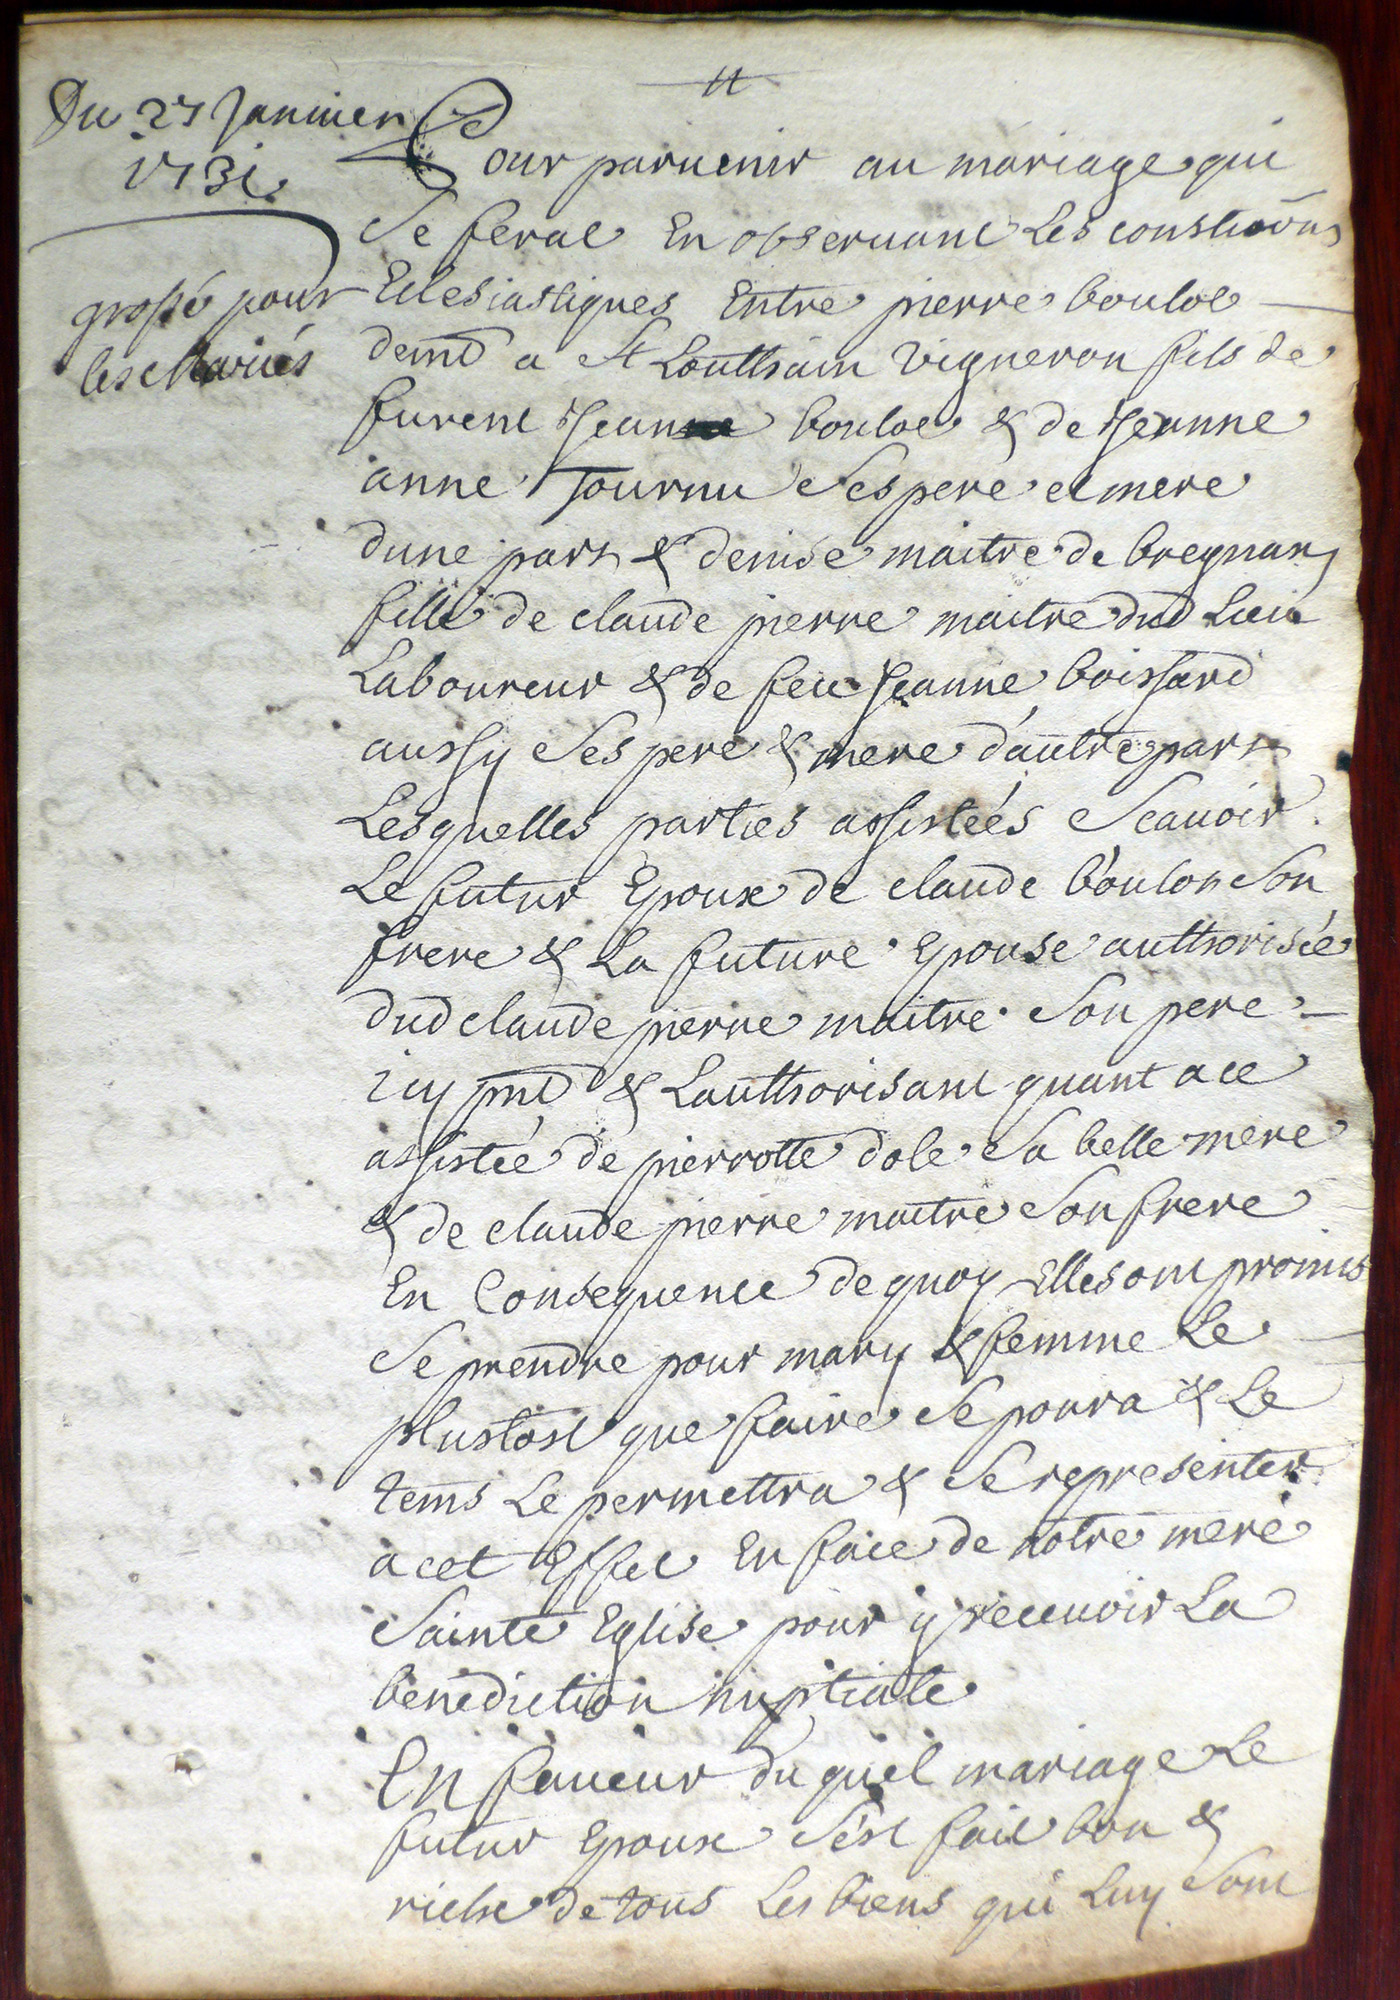 Du 27 Janvier
1731.
grossé pour
les Mariés
Pour paruenir au mariage qui
Se ferat En observant Les
Eclesiastiques Entre pierre boulot
demt a St Louthain Vigneron fils de
furent Jean boulot & de Jeanne
anne Tournu Ses pere et mere
dune part & denise maitre de bregnan
fille de claude pierre maitre dud Lieu
Laboureur & de feu Jeanne boissard
aussy Ses pere & mere d'autre part
Lesquelles parties assistées Scauoir
Le futur Epoux de claude boulot Son
frere & La future Epouse authorisée
dud claude pierre maitre Son pere
icy pnt & Lauthorisant quant a ce
assistée de pierrotte dole Sa belle mere
& de claude pierre maitre Son frere
En Consequence de quoy Elles ont promis
Se prendre pour mary & femme Le
plustost que faire Se poura & Le
tems Le permettra & Se representer
a cet Effet En face de notre mere
Sainte Eglise pour y receuoir La
benediction nuptiale
En faueur du quel mariage Le
futur Epoux S'est fait bon &
riche de tous Les biens qui Luy Sont